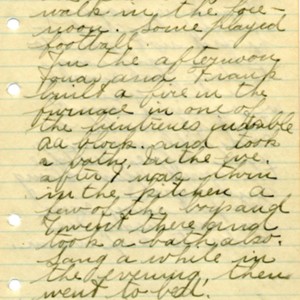 walk in the fore-
noon. Some played
football.
In the afternoon
Jonas and Frank
built a fire in the
furnace in one of
the
and took
a bath, in the eve.
after I was thru
in the kitchen a
few of the boys and
I went there and
took a bath also.
Sang a while in
the evening, then
went to bed.